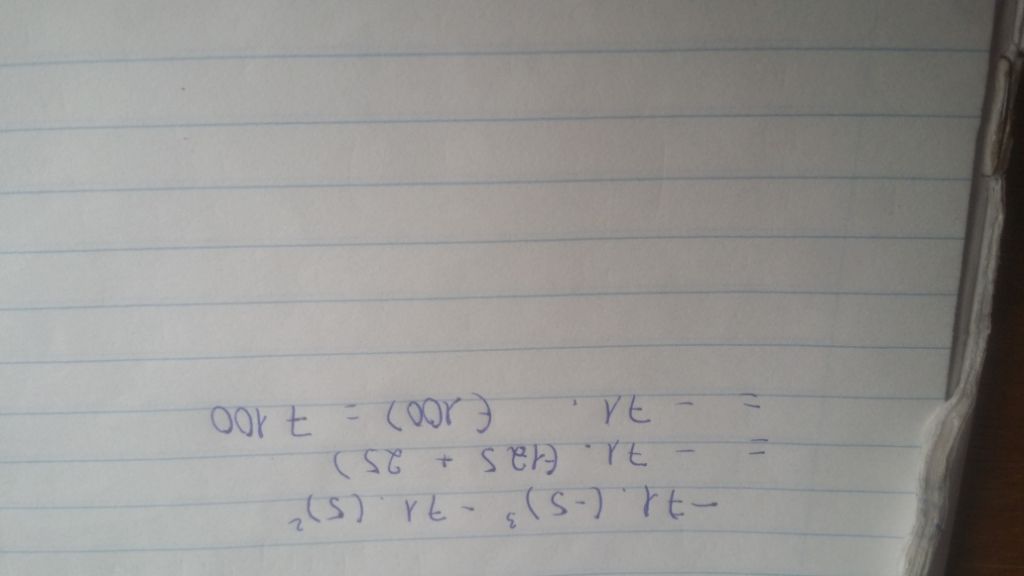 -71 . (-5)³ - 71 . (5)²
= - 71 . (-125 + 25)
= - 71 . (-100) = 7 100